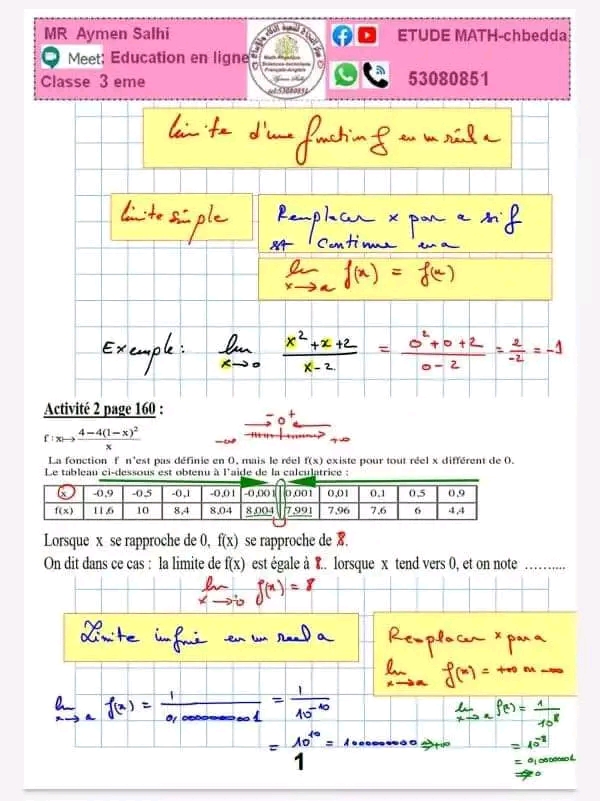 MR Aymen Salhi
Meet: Education en ligne
Classe 3 eme
ETUDE MATH-chbedda
53080851
Math-Physique
Sciences-techniques
Français-Anglais
Aymen Salhi
tel:53080851
Limite d'une fonction f en un réel a
Limite simple
Remplacer x par a si f
est continue en a
lim x→a f(x) = f(a)
Exemple : lim x→0 x²+x+2 / x-2 = 0²+0+2 / 0-2 = 2/-2 = -1
Activité 2 page 160 :
f : x ↦ 4-4(1-x)² / x
- 0 +
-∞ +∞
La fonction f n'est pas définie en 0, mais le réel f(x) existe pour tout réel x différent de 0.
Le tableau ci-dessous est obtenu à l'aide de la calculatrice :
x -0,9 -0,5 -0,1 -0,01 -0,001 0,001 0,01 0,1 0,5 0,9
f(x) 11,6 10 8,4 8,04 8,004 7,991 7,96 7,6 6 4,4
Lorsque x se rapproche de 0, f(x) se rapproche de 8.
On dit dans ce cas : la limite de f(x) est égale à 8.. lorsque x tend vers 0, et on note ..........
lim x→0 f(x) = 8
Limite infinie en un reel a
Remplacer x par a
lim x→a f(x) = +∞ ou -∞
lim x→a f(x) = 1 / 0,0000000001 = 1 / 10⁻¹⁰
= 10¹⁰ = 10000000000 → +∞
lim x→a f(x) = 1 / 10⁸
= 10⁻⁸
= 0,00000001
→ 0
1